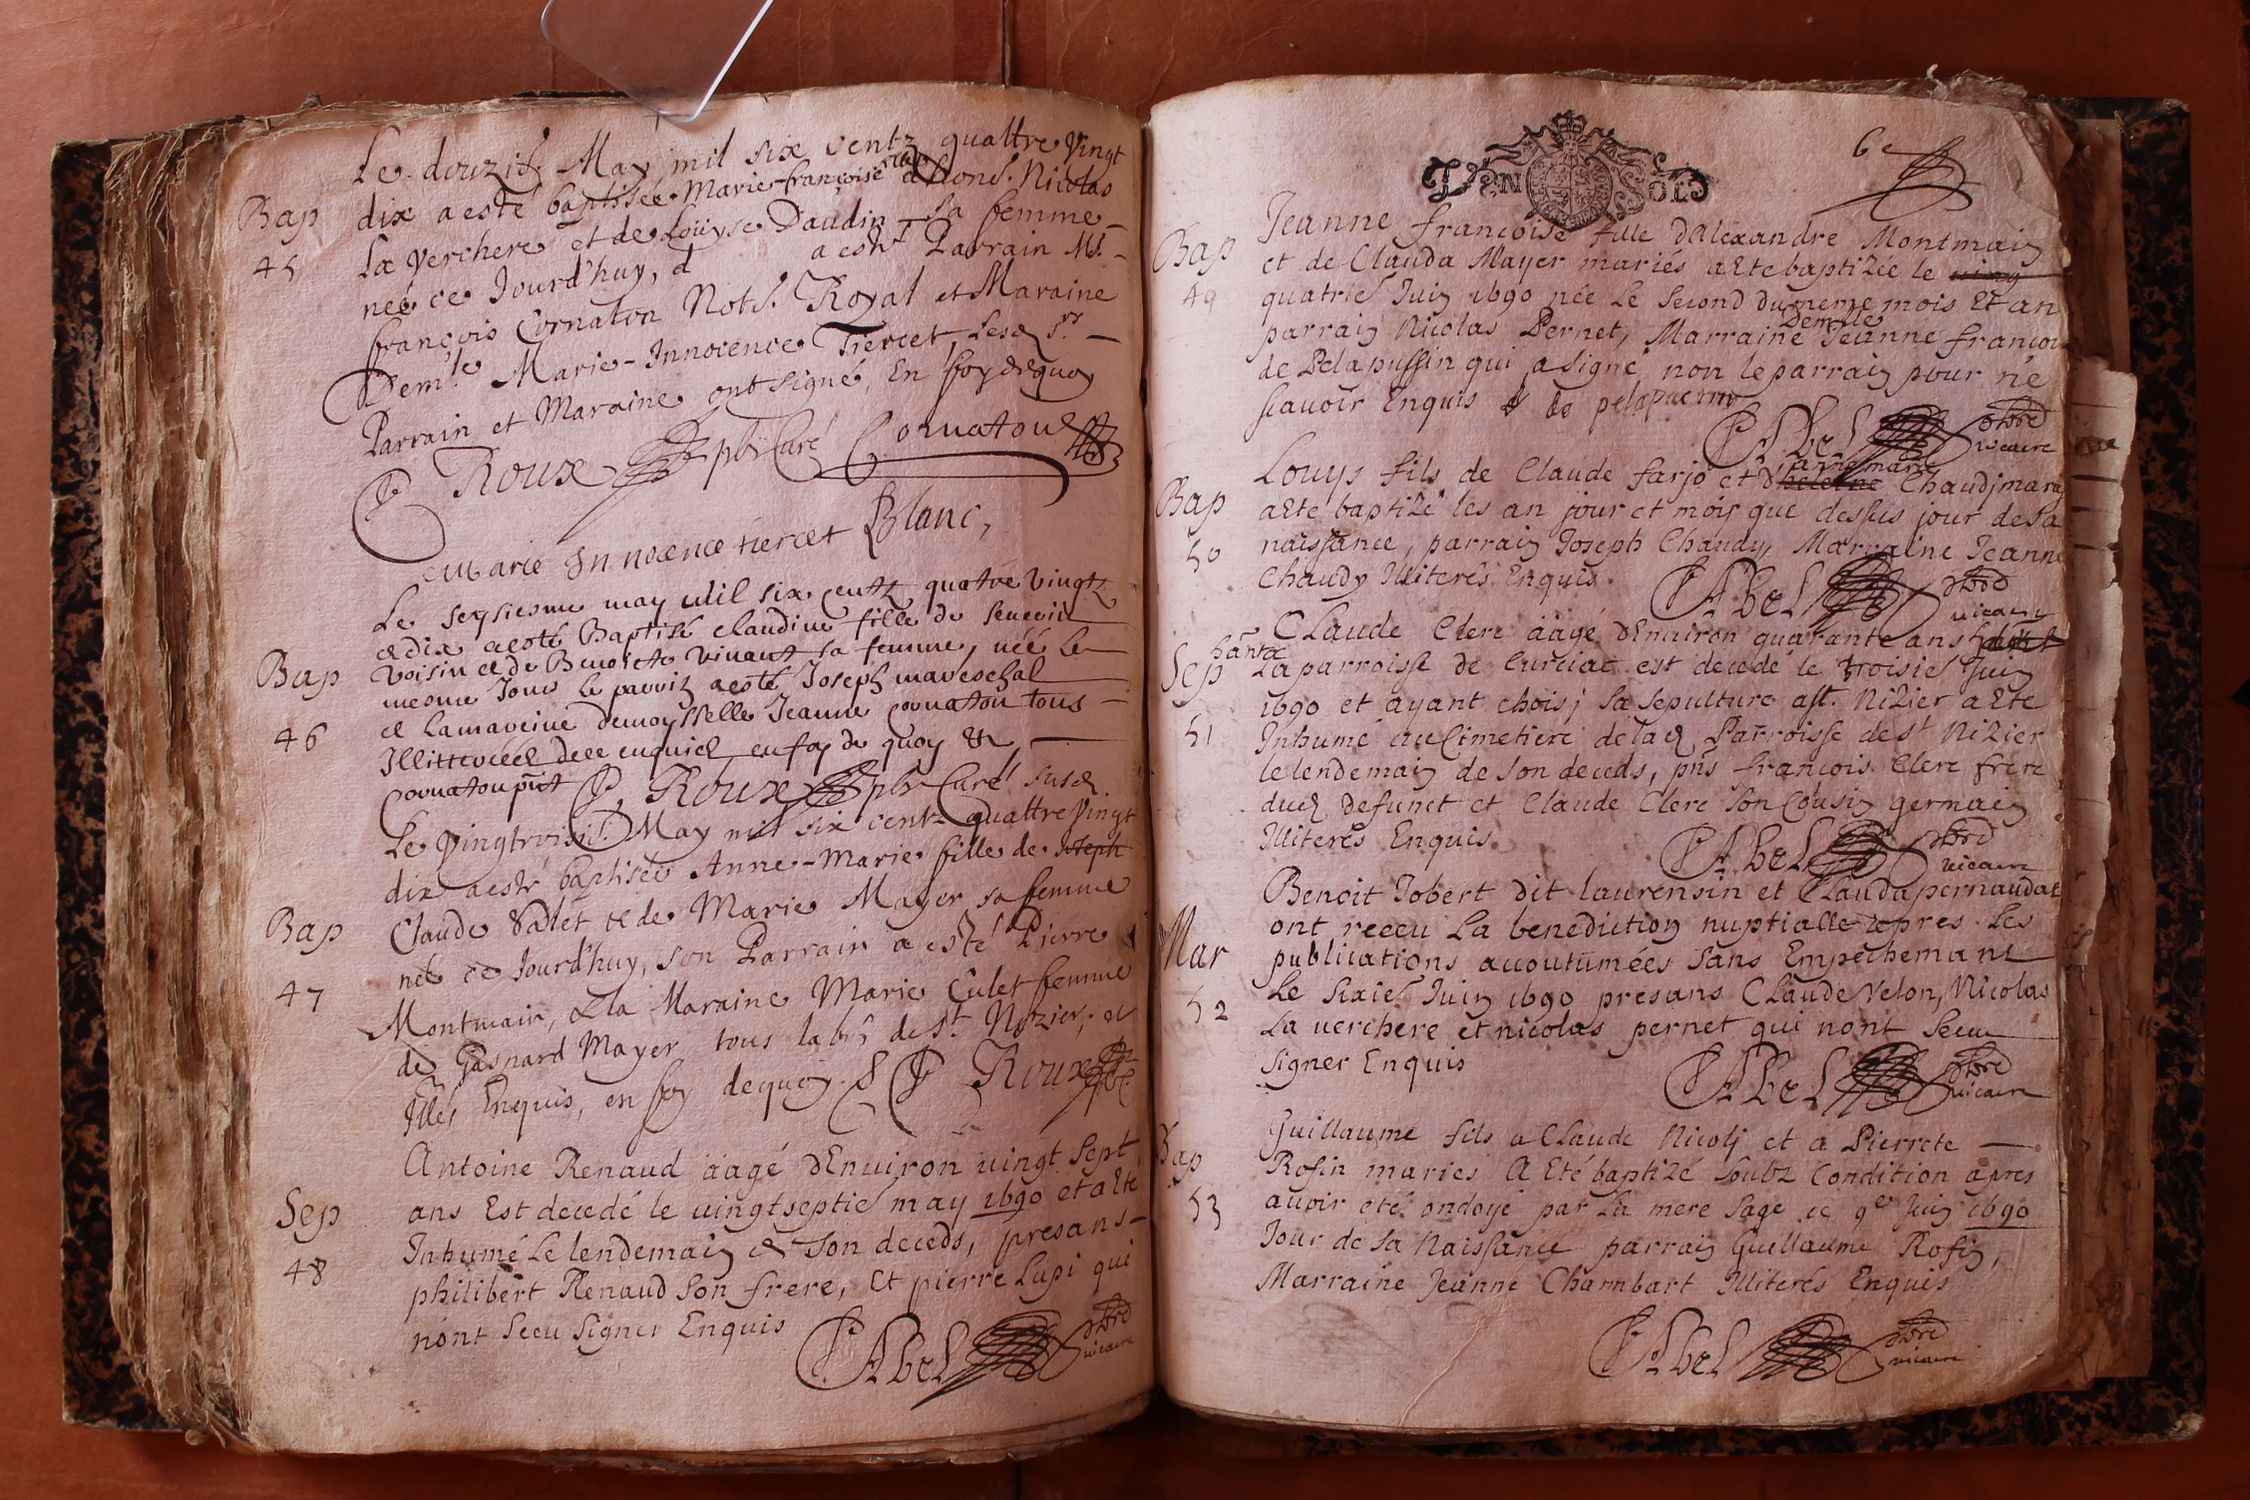 Le douzie. May mil six centz quattre Vingt
dix a esté baptisée Marie-françoise fille a hono. Nicolas
Bap
La Verchere et de Loüyse Daudin sa femme
45
neé ce Jourd'huy, a esté Parrain Mr.
françois Cornaton Not. Royal et Maraine
Dem.le Marie-Innocence Tiercet, Lesd. Srs
Parrain et Maraine ont signé, En foy de quoy
Roux pbr Curé Cornaton
Marie Innocence tiercet Blanc,
Le seysiesme may Mil six centz quatre vingtz
et dix a esté Baptisé claudine fille de
Bap
Voisin et de Benoicte vivant sa femme, née le
mesme Jour le parrin a esté Joseph mareschal
46
et Lamareine demoysselle Jeanne Cornaton tous
Illitterées de ce enquis en foy de quoy
Cornaton pnt Roux pbr Curé susd.
Le Vingtroisie. May mil six centz quattre Vingt
dix a esté baptisée Anne-Marie fille de Joseph
Bap
Claude Valet et de Marie Mayer sa femme
neé ce Jourd'huy, son Parrain a esté Pierre
47
Montmain, & la Maraine Marie Culet femme
de Gasnard Mayer tous labrs de St. Nizier, et
Illes Enquis, en foy de quoy Roux
Antoine Renaud äagé d'Enuiron uingt sept
Sep
ans Est decedé le uingtseptie may 1690 et a Eté
Inhumé Le lendemain de son deceds, presans
48
philibert Renaud son frere, et pierre Lupi qui
nont sceu signer Enquis
Abel pbre
uicaire
6e
Jeanne francoise fille d'Alexandre Montmain
Bap
et de Clauda Mayer mariés a Ete baptizée le uing
49
quatrie Juin 1690 née le second du meme mois Et an
Demlle
parrain Nicolas Pernet, Marraine Jeanne francois
de Pelapussin qui a signé, non le parrain pour ne
scauoir Enquis de pelapucin
Abel pbre
uicaire
anne marie
Louys fils de Claude farjo et d'heleine Chaudjmara
Bap
a Ete baptizé les an jour et mois que dessus jour de sa
50
naissance, parrain Joseph Chaudy, Marraine Jeanne
Chaudy Illiterés Enquis.
Abel pbre
uicaire
Claude Clerc äagé d'Enuiron quarante ans
Sep
La parroisse de Curciat est decedé le troisie Juin
1690 et ayant choisj sa sepulture a st. Nizier a Ete
51
Inhumé au Cimetiere de lad. Parroisse de st Nizier
le lendemain de son deceds, pns francois Clerc frere
dud. defunct et Claude Clerc son Cousin germain
Illiterés Enquis.
Abel pbre
uicaire
Benoit Jobert dit laurensin et Clauda pernaudat
ont receu La benediction nuptialle apres Les
Mar
publications acoutumées sans Empechemant
52
Le sixie Juin 1690 presans Claude Velon, Nicolas
La uerchere et nicolas pernet qui nont sceu
signer Enquis
Abel pbre
uicaire
Guillaume fils a Claude Nicolj et a Pierrete
Bap
Rofin mariés A Eté baptizé soubz Condition apres
53
auoir eté ondoyé par La mere sage ce 9e Juin 1690
Jour de sa Naissance parrain Guillaume Rofin,
Marraine Jeanne Chambart Illiterés Enquis
Abel pbre
uicaire